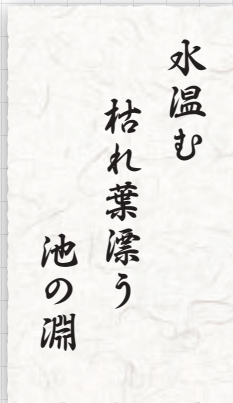 水温む
枯れ葉漂う
池の淵